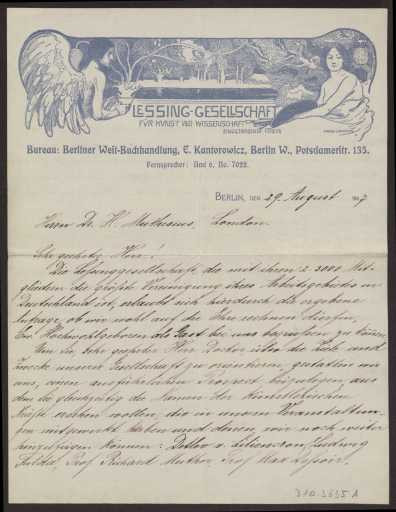 LESSING-GESELLSCHAFT
FÜR KUNST UND WISSENSCHAFT
Bureau: Berliner Welt-Buchhandlung, E. Kantorowicz, Berlin W., Potsdamerstr. 135.
Fernsprecher: Amt 6, No. 7022.
BERLIN, DEN 29. August
Herrn Dr. H. Muthesius, London.
Sehr geehrter Herr!
Die Lessinggesellschaft, die mit ihren 2-3000 Mit-
gliedern die größte Vereinigung ihres Arbeitsgebietes in
Deutschland ist, erlaubt sich hierdurch die ergebene
Anfrage, ob wir wohl auf die Ehre rechnen dürfen,
Ew. Hochwohlgeboren als Gast bei uns begrüssen zu können.
Um Sie, sehr geehrter Herr Doctor über die Ziele und
Zwecke unserer Gesellschaft zu orientieren, gestatten wir
uns, einen ausführlichen Prospect beizulegen, aus
dem Sie gleichzeitig die Namen der künstlerischen
Kräfte ersehen wollen, die in unsern Veranstaltun-
gen mitgewirkt haben und denen wir noch weiter
hinzufügen können: Detlev v. Liliencron, Ludwig
Fulda, Prof. Richard Muther, Prof. Max Dessoir.
310.3635 A